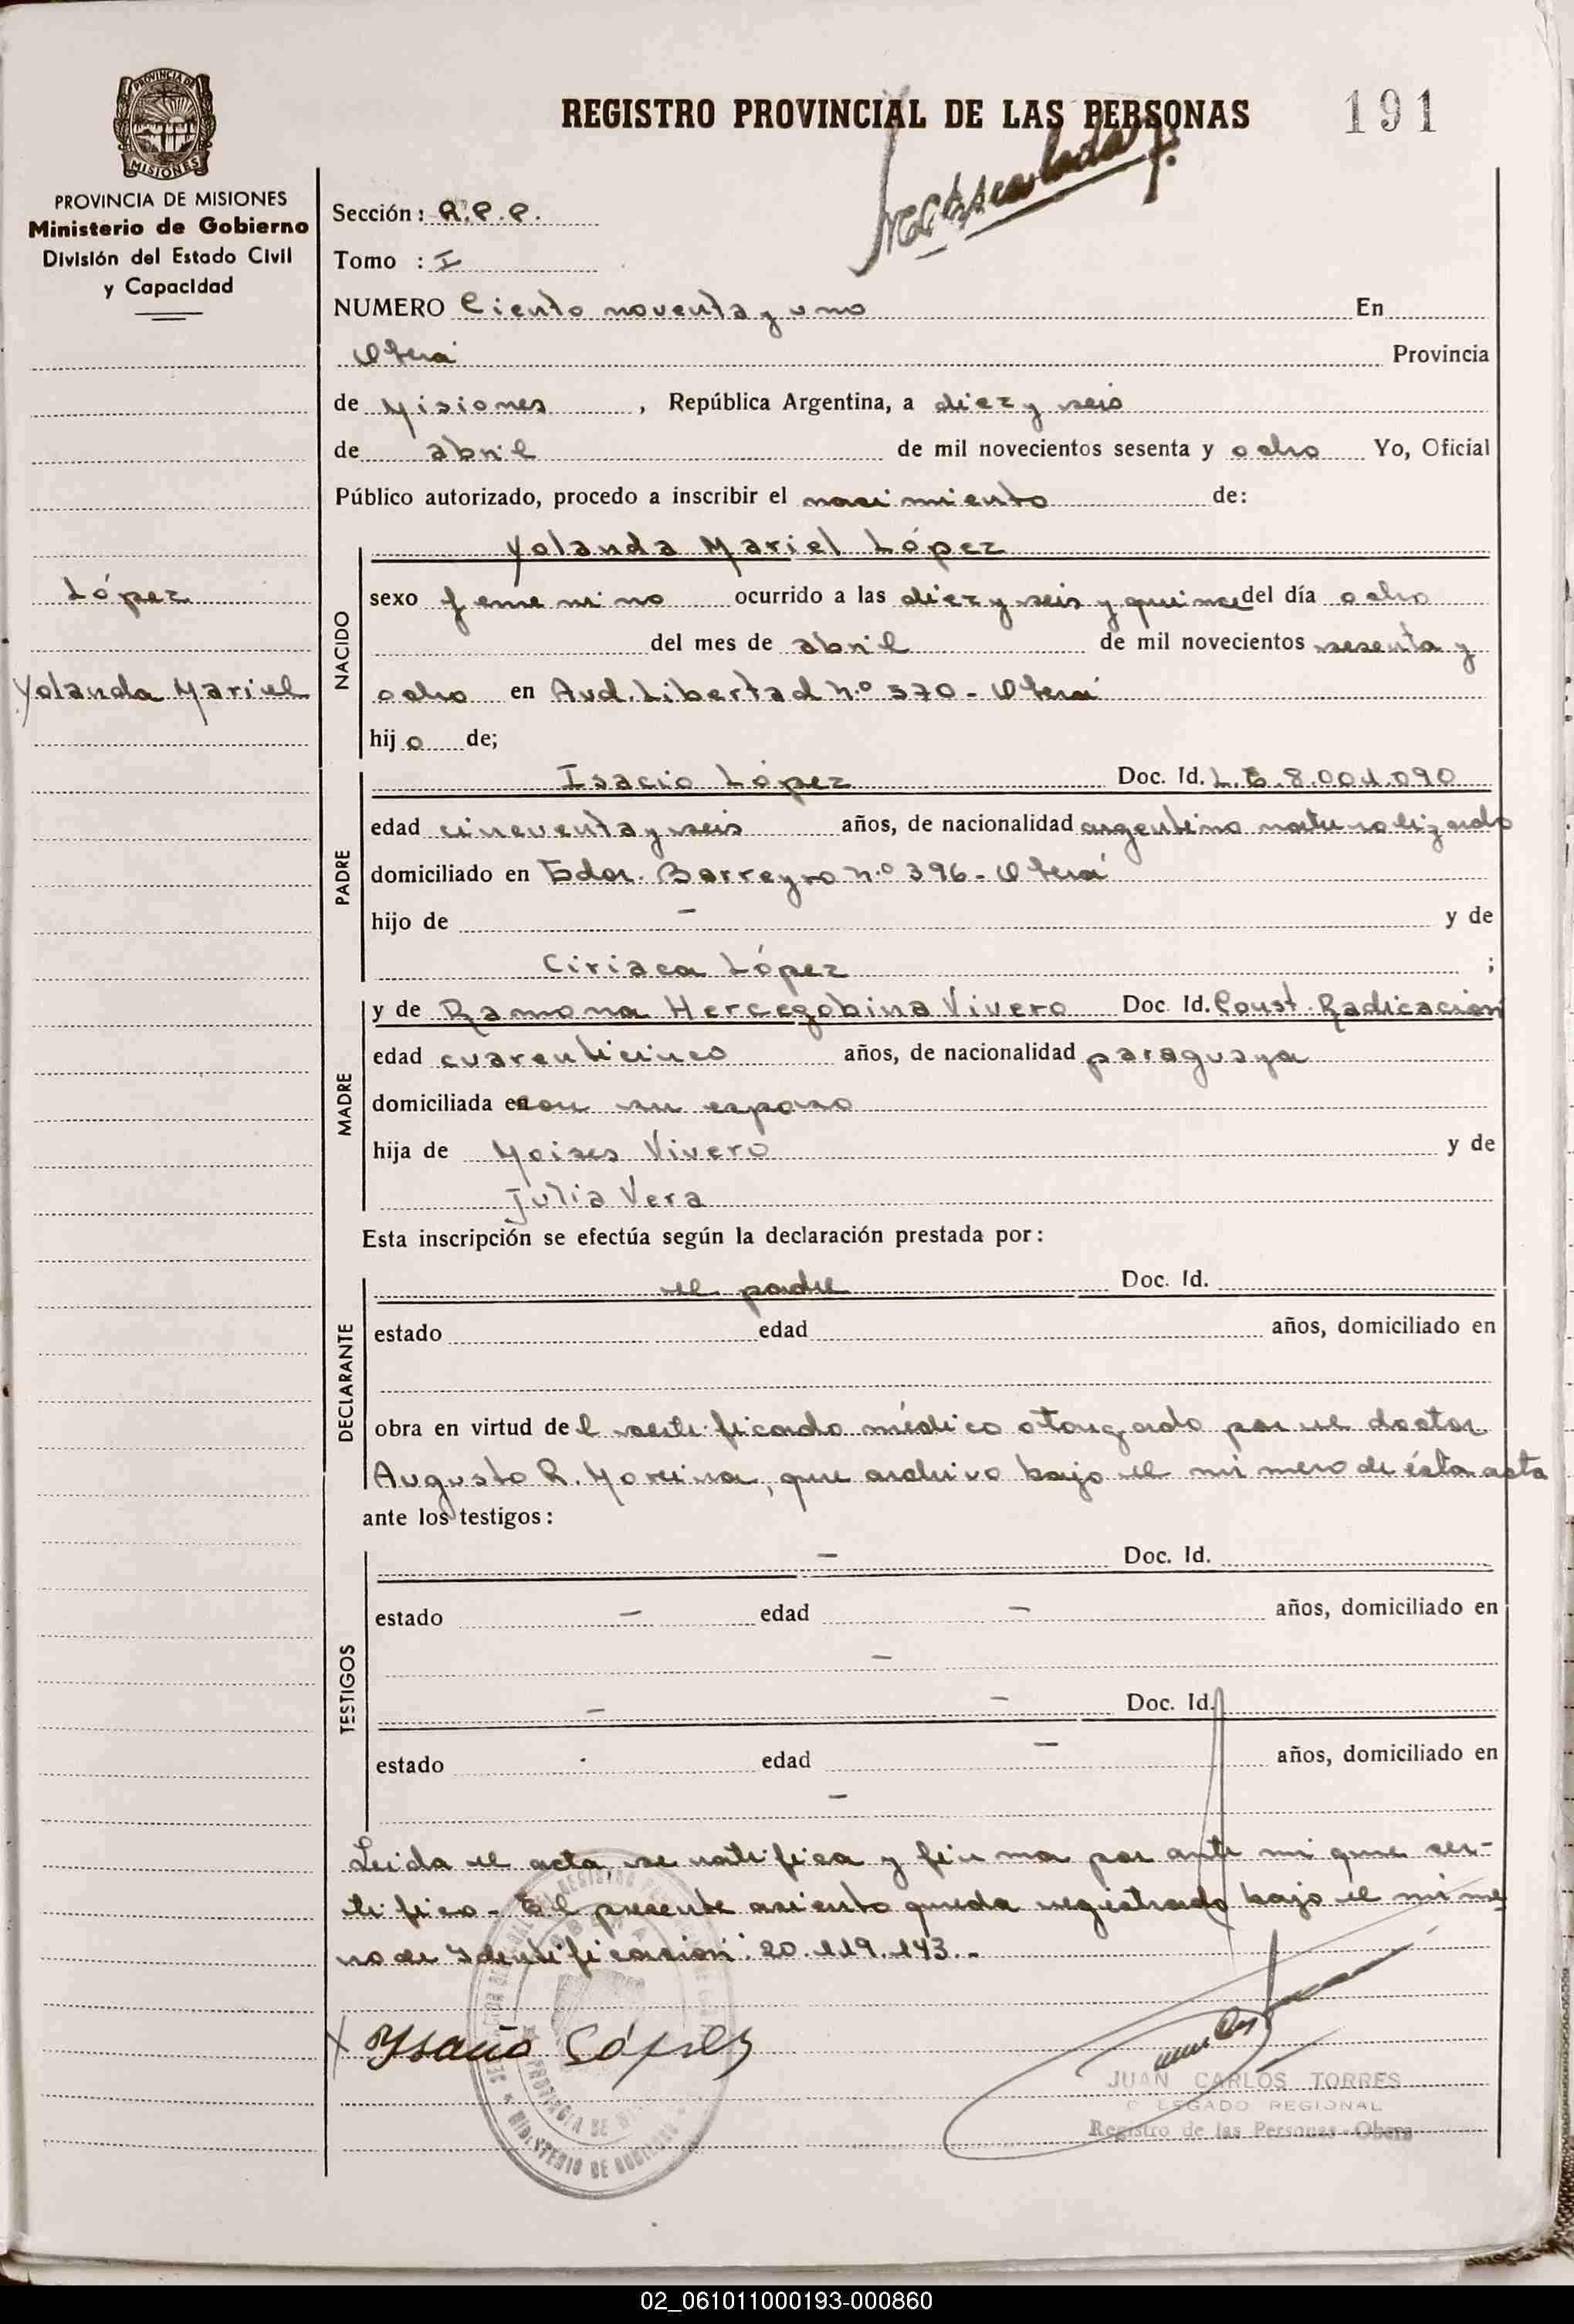 REGISTRO PROVINCIAL DE LAS PERSONAS
191
PROVINCIA DE MISIONES
MISIONES
PROVINCIA DE MISIONES
Ministerio de Gobierno
División del Estado Civil
y Capacidad
López
Yolanda Mariel
Sección: R.P.P.
Tomo : I
NUMERO Ciento noventa y uno En
Oberá Provincia
de Misiones , República Argentina, a diez y seis
de abril de mil novecientos sesenta y ocho Yo, Oficial
Público autorizado, procedo a inscribir el nacimiento de:
NACIDO
Yolanda Mariel López
sexo femenino ocurrido a las diez y seis y quince del día ocho
del mes de abril de mil novecientos sesenta y
ocho en Avd. Libertad N.º 570 - Oberá
hijo de;
PADRE
Isacio López Doc. Id. L.E. 8.001.090
edad cincuenta y seis años, de nacionalidad argentino naturalizado
domiciliado en Gdor. Barreyro N.º 396 - Oberá
hijo de - y de
Ciriaca López ;
MADRE
y de Ramona Hercegobina Vivero Doc. Id. Const. Radicación
edad cuarenticinco años, de nacionalidad paraguaya
domiciliada con su esposo
hija de Moises Vivero y de
Julia Vera
Esta inscripción se efectúa según la declaración prestada por:
DECLARANTE
el padre Doc. Id.
estado edad años, domiciliado en
obra en virtud del certificado médico otorgado por el doctor
Augusto R. Moreira, que archivo bajo el número de ésta acta
ante los testigos:
TESTIGOS
- Doc. Id.
estado - edad - años, domiciliado en
-
- - Doc. Id.
estado edad - años, domiciliado en
-
Leida el acta, se ratifica y firma por ante mi que cer-
tifico - El presente asiento queda registrado bajo el núme
ro de Identificación: 20.119.143.-
X Ysacio López
JUAN CARLOS TORRES
DELEGADO REGIONAL
Registro de las Personas - Obera
02_061011000193-000860